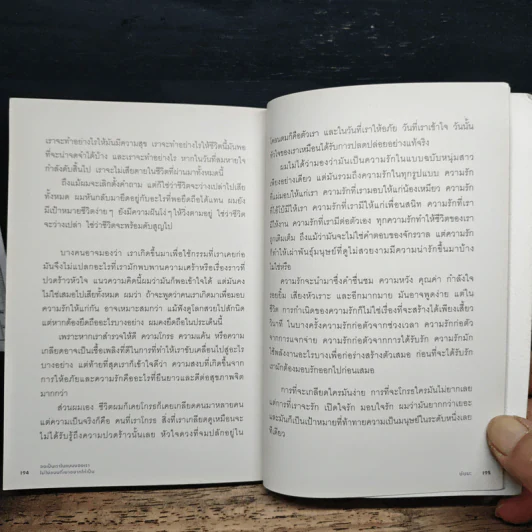 เราจะทำอย่างไรให้มันมีความสุข เราจะทำอย่างไรให้ชีวิตนี้มันพอ
ที่จะน่าจดจำได้บ้าง และเราจะทำอย่างไร หากในวันที่ลมหายใจ
กำลังดับสิ้นไป เราจะไม่เสียดายในชีวิตที่ผ่านมาทั้งหมดนี้
ถึงแม้ผมจะเลิกตั้งคำถาม แต่ก็ใช่ว่าชีวิตจะว่างเปล่าไปเสีย
ทั้งหมด ผมหันกลับมายึดอยู่กับอะไรที่พอยึดถือได้แทน ผมยัง
มีเป้าหมายชีวิตง่ายๆ ยังมีความฝันโง่ๆ ให้วิ่งตามอยู่ ใช่ว่าชีวิต
จะว่างเปล่า ใช่ว่าชีวิตจะพร้อมดับสูญไป
บางคนอาจมองว่า เราเกิดขึ้นมาเพื่อใช้กรรมที่เราเคยก่อ
มันจึงไม่แปลกอะไรที่เรามักพบพานความเศร้าหรือเรื่องราวที่
ปวดร้าวหัวใจ แนวความคิดนี้ผมว่ามันก็พอเข้าใจได้ แต่มันคง
ไม่ใช่เสมอไปเสียทั้งหมด ผมว่า ถ้าจะพูดว่าคนเราเกิดมาเพื่อมอบ
ความรักให้แก่กัน อาจเหมาะสมกว่า แม้ฟังดูโลกสวยไปสักนิด
แต่หากต้องยึดถืออะไรบางอย่าง ผมคงยึดถือในประเด็นนี้
เพราะหากเราสำรวจให้ดี ความโกรธ ความแค้น หรือความ
เกลียดอาจเป็นเชื้อเพลิงที่ดีในการที่ทำให้เราขับเคลื่อนไปสู่อะไร
บางอย่าง แต่ท้ายที่สุดเราก็เข้าใจดีว่า ความสงบที่เกิดขึ้นจาก
การให้อภัยและความรักคืออะไรที่ยืนยาวและดีต่อสุขภาพจิต
มากกว่า
ส่วนผมเอง ชีวิตผมก็เคยโกรธก็เคยเกลียดคนมาหลายคน
แต่ความเป็นจริงก็คือ คนที่เราโกรธ สิ่งที่เราเกลียดดูเหมือนจะ
ไม่ได้รับรู้ถึงความปวดร้าวนั้นเลย หัวใจดวงที่จมปลักอยู่ใน
194
โคลนตมก็คือตัวเรา และในวันที่เราให้อภัย วันที่เราเข้าใจ วันนั้น
หัวใจของเราเหมือนได้รับการปลดปล่อยอย่างแท้จริง
ผมไม่ได้ว่ามองว่ามันเป็นความรักในแบบฉบับหนุ่มสาว
เพียงอย่างเดียว แต่มันรวมถึงความรักในทุกรูปแบบ ความรัก
ที่แม่มอบให้แก่เรา ความรักที่เรามอบให้แก่น้องเหมียว ความรัก
ที่ได้ใช้มีให้เรา ความรักที่เรามีให้แก่เพื่อนสนิท ความรักที่เรา
มีให้งาน ความรักที่เรามีต่อตัวเอง ทุกความรักทำให้ชีวิตของเรา
ถูกเติมเต็ม ถึงแม้ว่ามันจะไม่ใช่คำตอบของจักรวาล แต่ความรัก
ก็ทำให้เผ่าพันธุ์มนุษย์ที่ดูไม่สวยงามมีความน่ารักขึ้นมาบ้าง
ไม่ใช่หรือ
ความรักจะนำมาซึ่งคำชื่นชม ความหวัง คุณค่า กำลังใจ
รอยยิ้ม เสียงหัวเราะ และอีกมากมาย มันอาจพูดง่าย แต่ใน
ชีวิต การกำเนิดของความรักก็ไม่ใช่เรื่องที่จะสร้างได้เพียงเสี้ยว
วินาที ในบางครั้งความรักก่อตัวจากช่วงเวลา ความรักก่อตัว
จากการแจกจ่าย ความรักก่อตัวจากการได้รับรัก ความรักมัก
ใช้พลังงานอะไรบางเพื่อก่อร่างสร้างตัวเสมอ ก่อนที่จะได้รับรัก
เรามักต้องมอบรักออกไปก่อนเสมอ
การที่จะเกลียดใครมันง่าย การที่จะโกรธใครมันไม่ยากเลย
แต่การที่เราจะรัก เปิดใจรัก มอบใจรัก ผมว่ามันยากกว่าเยอะ
และมันก็เป็นเป้าหมายที่ท้าทายความเป็นมนุษย์ในระดับหนึ่งเลย
ทีเดียว
195